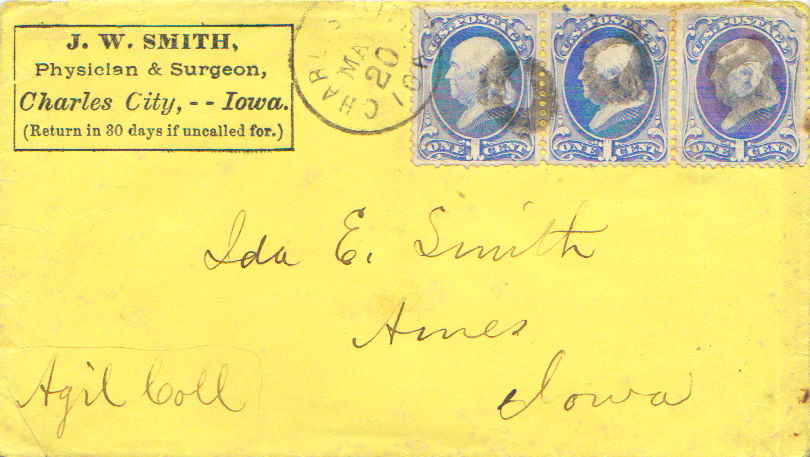 J. W. SMITH,
Physician & Surgeon,
Charles City, -- Iowa.
(Return in 30 days if uncalled for.)
CHARLES
MA
20
IOWA
U.S. POSTAGE
ONE 1 CENT
U.S. POSTAGE
ONE 1 CENT
U.S. POSTAGE
ONE 1 CENT
Ida E. Smith
Ames
Iowa
Agil Coll